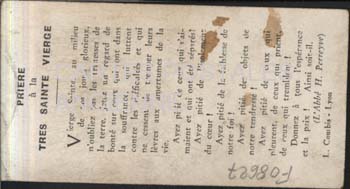 PRIÈRE
à la
TRÈS SAINTE VIERGE
Vierge Sainte, au milieu
de vos jours glorieux,
n'oubliez pas les tristesses de
la terre. Jetez un regard de
bonté sur ceux qui sont dans
la souffrance, qui luttent
contre les difficultés et qui
ne cessent de tremper leurs
lèvres aux amertumes de la
vie.
Ayez pitié de ceux qui s'ai-
maient et qui ont été séparés!
Ayez pitié de l'isolement
du cœur!
Ayez pitié de la faiblesse de
notre foi!
Ayez pitié des objets de
notre tendresse!
Ayez pitié de ceux qui
pleurent, de ceux qui prient,
de ceux qui tremblent!
Donnez à tous l'espérance
et la paix! Ainsi soit-il.
(L'Abbé H. Perreyve)
L. Combis - Lyon
F08627